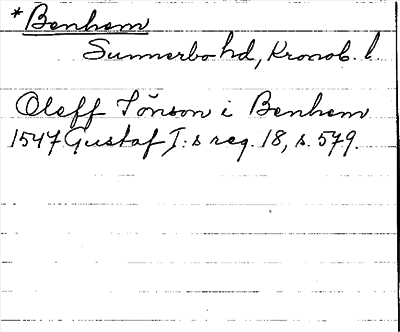 *Benhem
Sunnerbo hd, Kronob. l.
Oleff Sönson i Benhem
1547 Gustaf I:s reg. 18, s. 579.